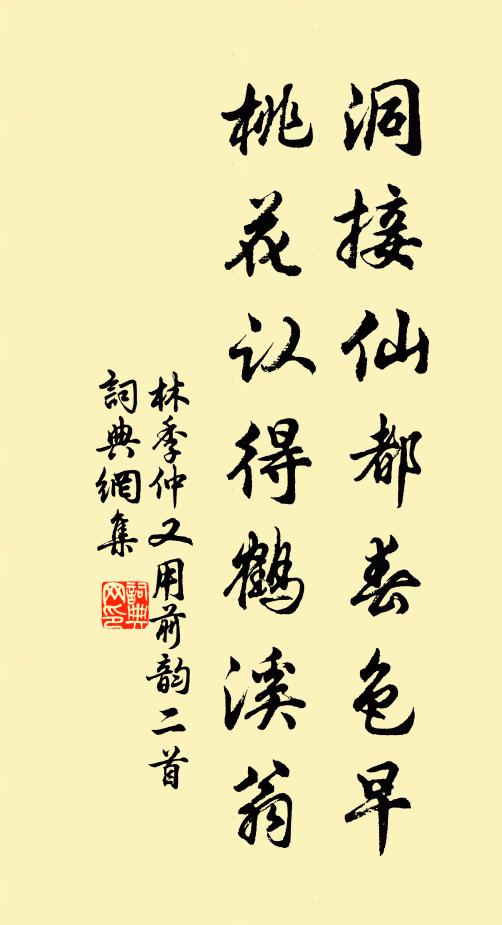 洞接仙都春色早
桃花认得鹤溪翁
林季仲又用前韵二首
詞典網集
詞典网印